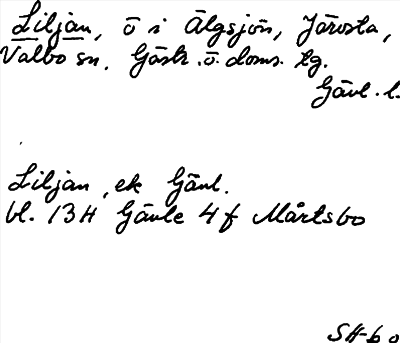 Liljan, ö i Älgsjön, Järvsta,
Valbo sn. Gästr. ö. doms. tg.
Gävl. l.
Liljan, ek Gävl.
bl. 13H Gävle 4f Mårtsbo
SH-b o